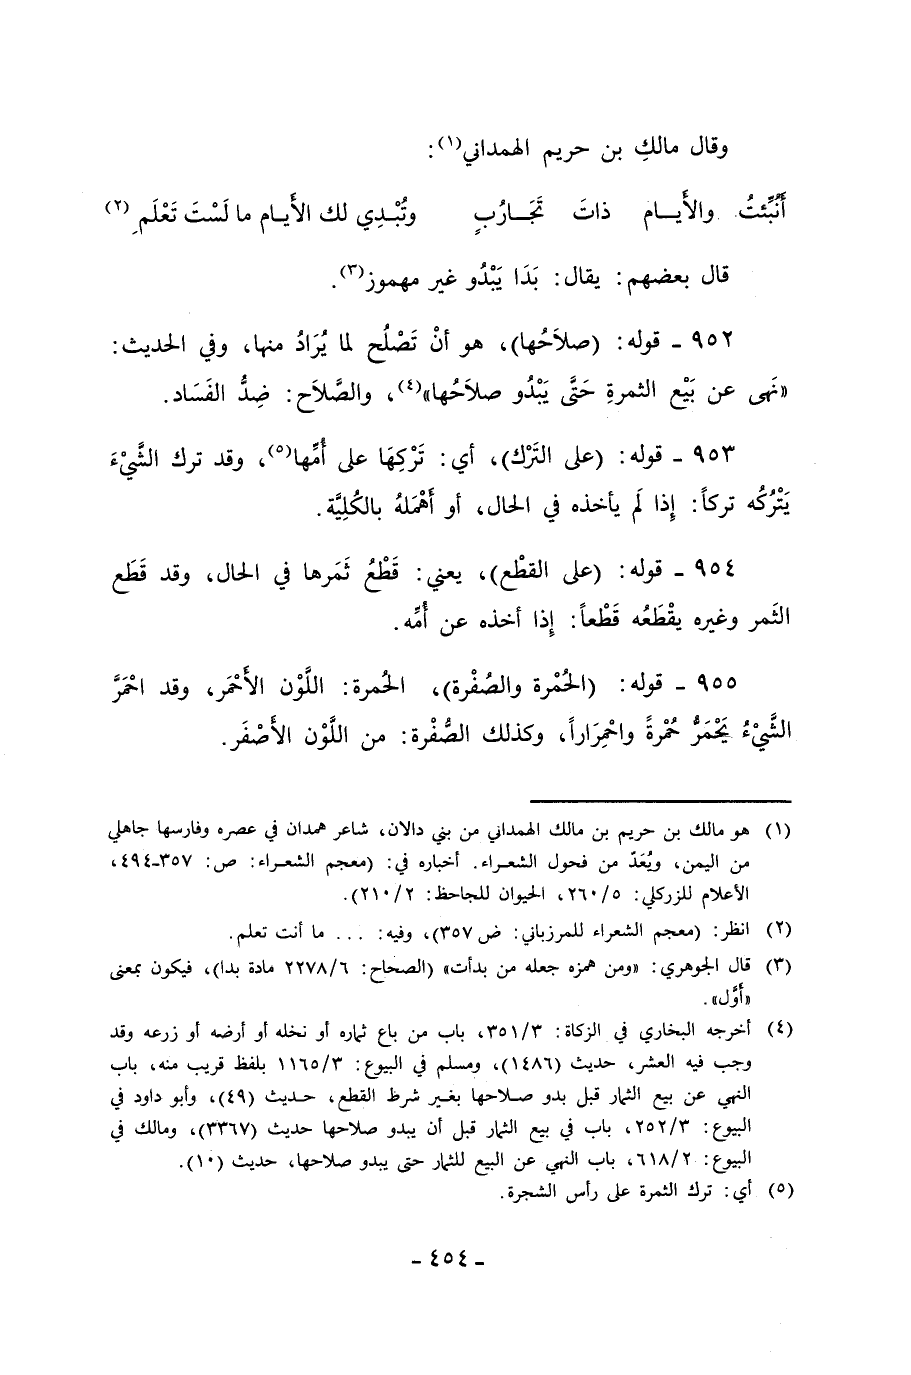 وقال مالك بن حريم الهمداني(١):
أُنْبِّئتُ والأَيـام ذاتَ تَجَـارُبٍ وتُبْـدِي لك الأَيـام ما لَسْتَ تَعْلَمِ(٢)
قال بعضهم: يقال: بَدَا يَبْدُو غير مهموز(٣).
٩٥٢ - قوله: (صلاَحُها)، هو أنْ تَصْلُح لما يُرَادُ منها، وفي الحديث:
«نَهى عن بَيْع الثمرةِ حَتَّى يَبْدُو صلاَحُها»(٤)، والصَّلاَح: ضِدُّ الفَسَاد.
٩٥٣ - قوله: (على التَرْك)، أي: تَرْكِهَا على أُمِّها(٥)، وقد ترك الشَّيْءَ
يَتْرُكُه تركاً: إِذا لَم يأخذه في الحال، أو أَهْمَلهُ بالكُلِيَّة.
٩٥٤ - قوله: (على القطْع)، يعني: قَطْعُ ثَمَرها في الحال، وقد قَطَع
الثَمر وغيره يقْطَعُه قَطْعاً: إِذا أخذه عن أُمِّه.
٩٥٥ - قوله: (الحُمْرة والصُفْرة)، الحُمرة: اللَّوْن الأَحْمَر، وقد احْمَرَّ
الشَّيْءُ يَحْمَرُّ حُمْرةً واحْمِرَاراً، وكذلك الصُّفْرة: من اللَّوْن الأَصْفَر.
(١) هو مالك بن حريم بن مالك الهمداني من بني دالان، شاعر همدان في عصره وفارسها جاهلي
من اليمن، ويُعَدّ من فحول الشعـراء. أخباره في: (معجم الشعـراء: ص: ٣٥٧-٤٩٤،
الأعلام للزركلي: ٢٦٠/٥، الحيوان للجاحظ: ٢١٠/٢).
(٢) انظر: (معجم الشعراء للمرزباني: ص ٣٥٧)، وفيه: ... ما أنت تعلم.
(٣) قال الجوهري: «ومن همزه جعله من بدأت» (الصحاح: ٢٢٧٨/٦ مادة بدا)، فيكون بمعنى
«أوَّل».
(٤) أخرجه البخاري في الزكاة: ٣٥١/٣، باب من باع ثماره أو نخله أو أرضه أو زرعه وقد
وجب فيه العشر، حديث (١٤٨٦)، ومسلم في البيوع: ١١٦٥/٣ بلفظ قريب منه، باب
النهي عن بيع الثمار قبل بدو صـلاحها بغـير شرط القطع، حـديث (٤٩)، وأبو داود في
البيوع: ٢٥٢/٣، باب في بيع الثمار قبل أن يبدو صلاحها حديث (٣٣٦٧)، ومالك في
البيوع: ٦١٨/٢، باب النهي عن البيع للثمار حتى يبدو صلاحها، حديث (١٠).
(٥) أي: ترك الثمرة على رأس الشجرة.
- ٤٥٤ -